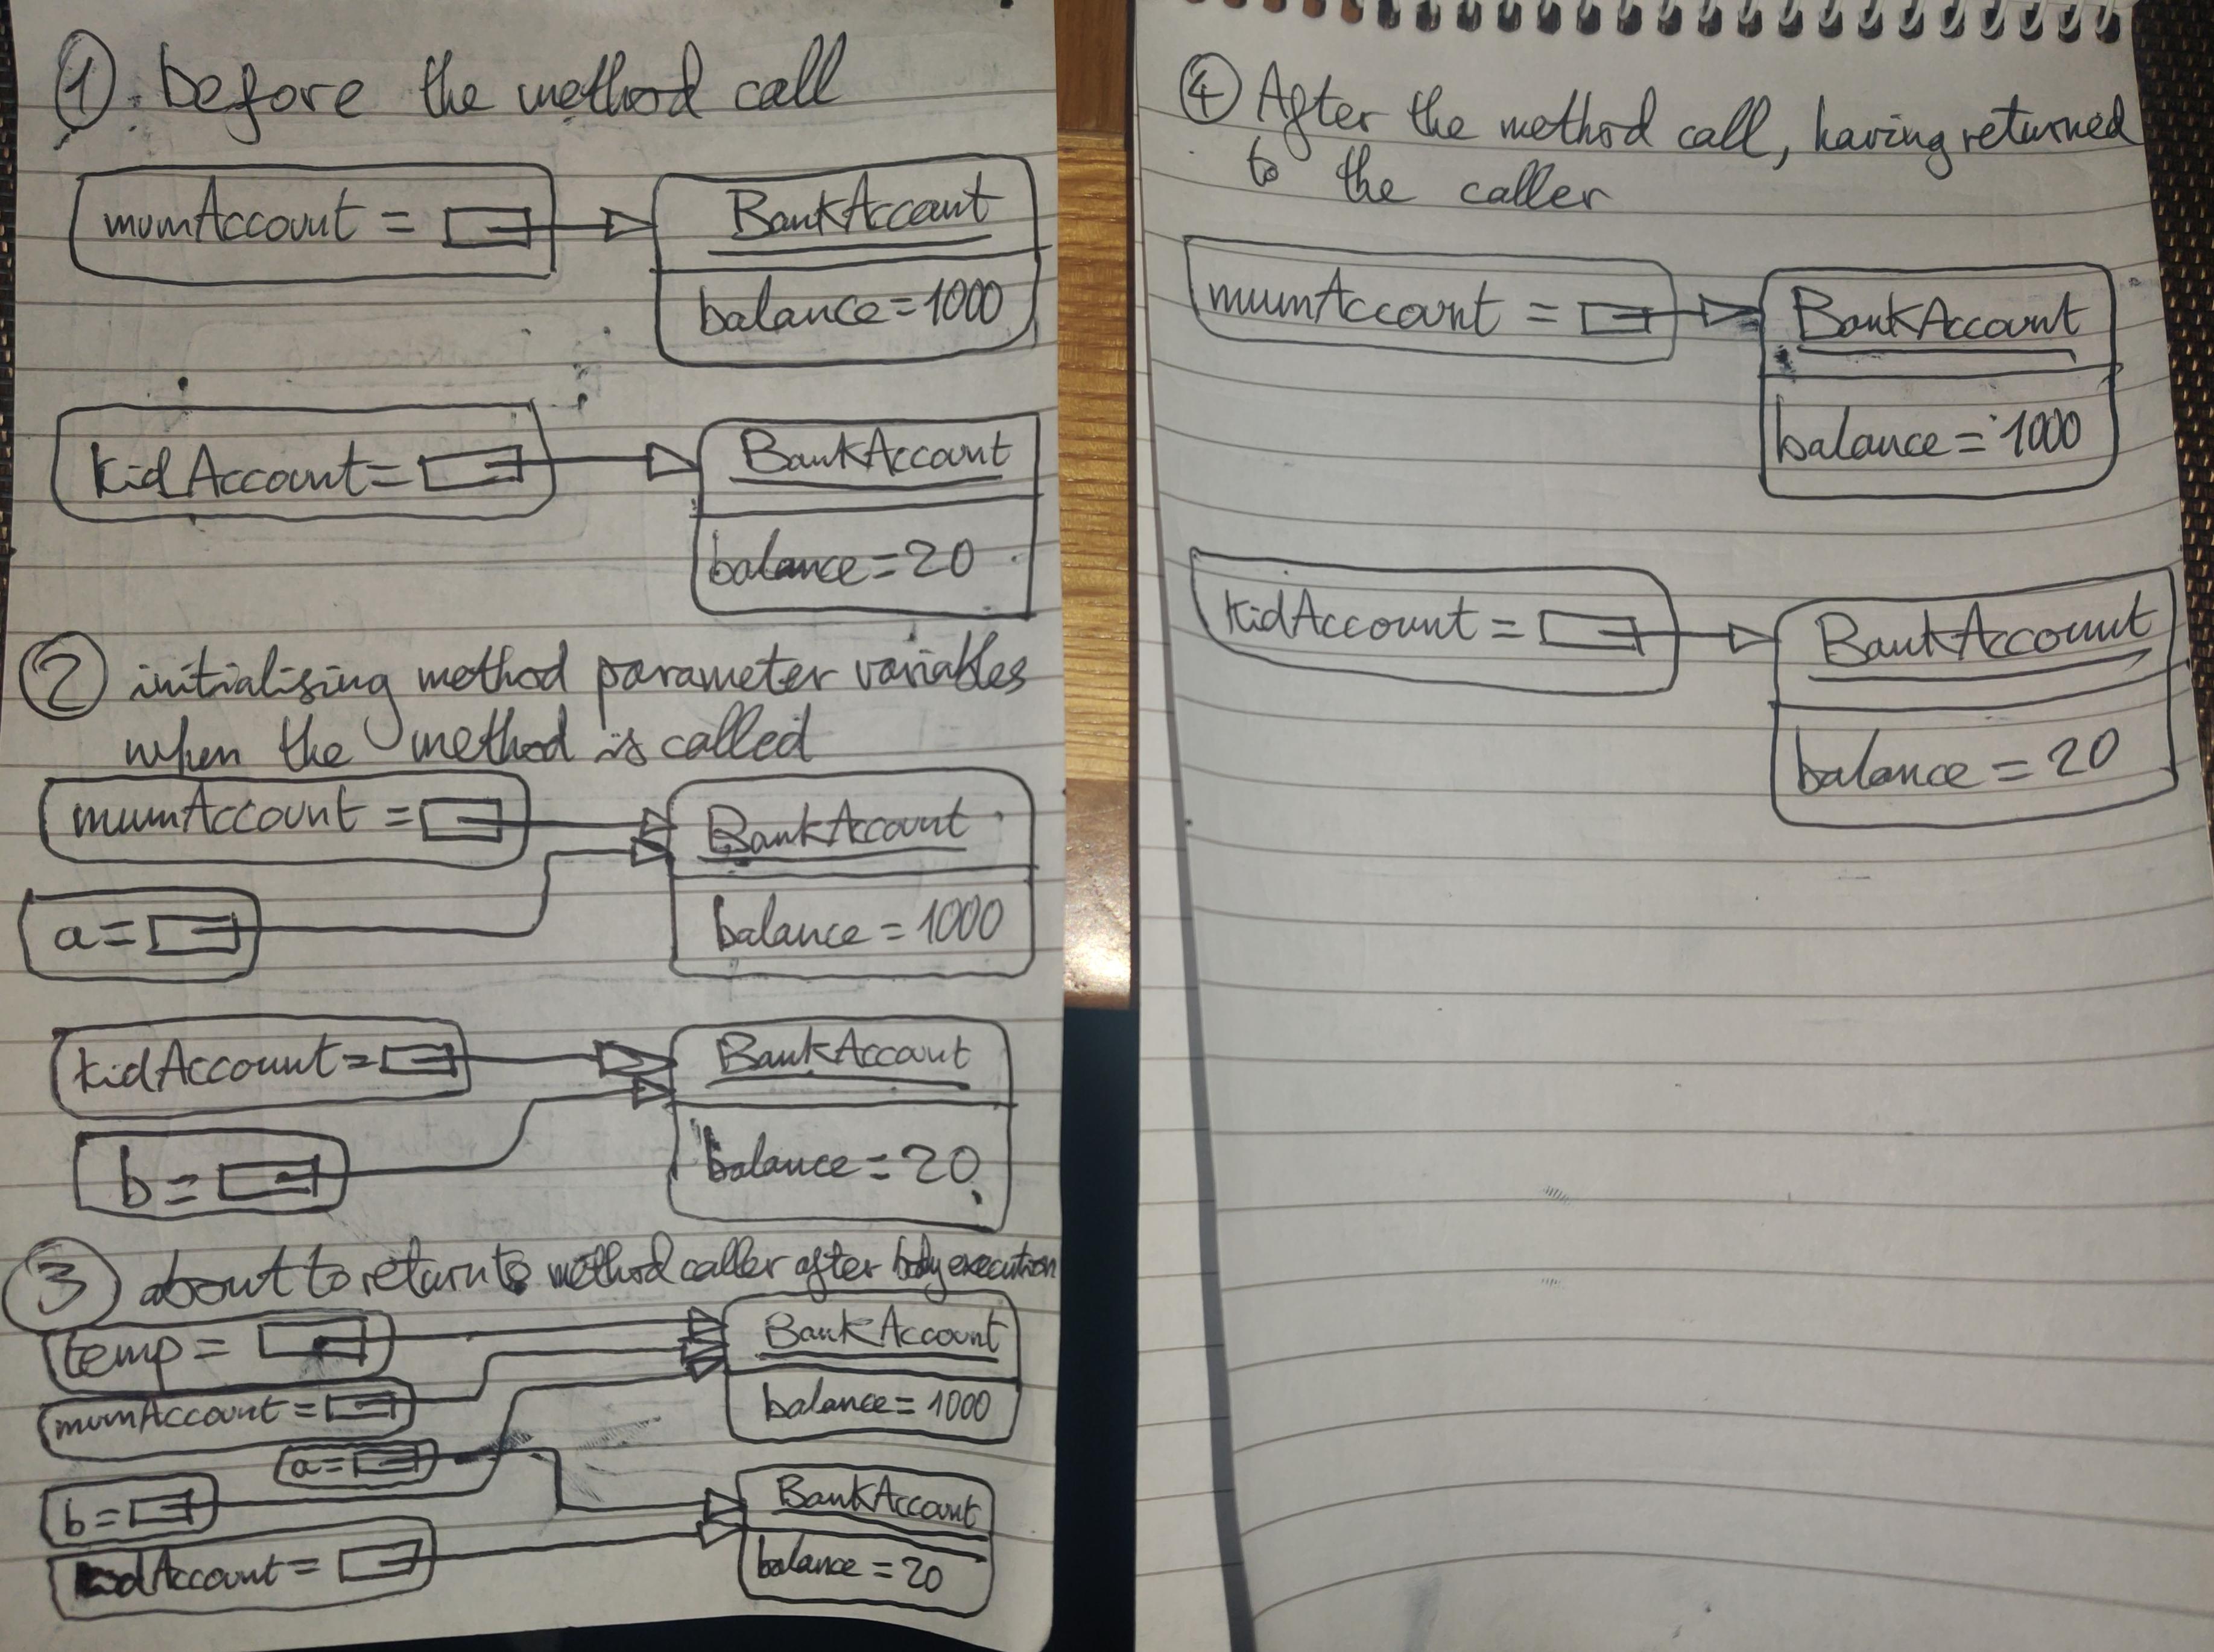 ① . before the method call
mumAccount =
BankAccount
balance=1000
kidAccount=
BankAccount
balance=20
② initialising method parameter variables
when the method is called
mumAccount =
BankAccount
a=
balance = 1000
kidAccount=
BankAccount
b=
balance = 20
③ about to return to method caller after body execution
temp=
BankAccount
mumAccount=
balance= 1000
a=
b=
BankAccount
kidAccount=
balance = 20
④ After the method call, having returned
to the caller
mumAccount =
BankAccount
balance = 1000
kidAccount =
BankAccount
balance = 20